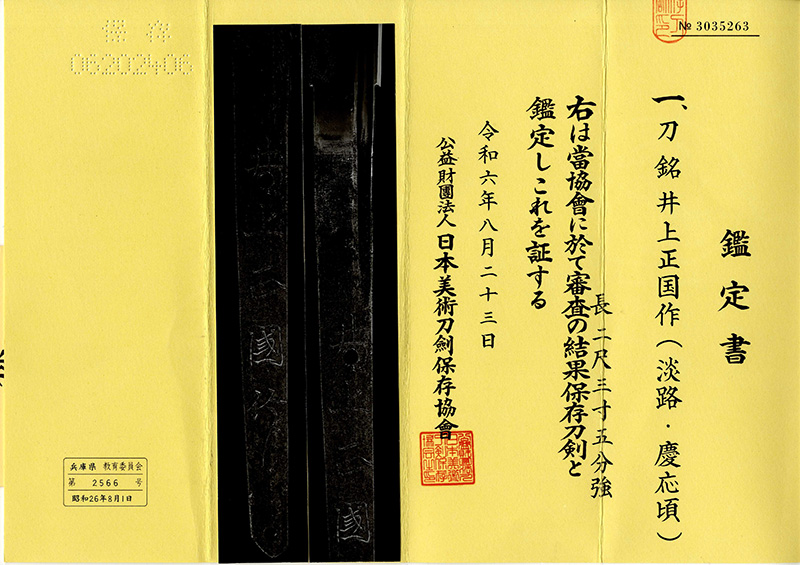 № 3035263
鑑定書
一、刀 銘 井上正国作(淡路・慶応頃)
長二尺三寸五分強
右は當協會に於て審査の結果保存刀剣と
鑑定しこれを証する
令和六年八月二十三日
公益財團法人日本美術刀劍保存協會
保存
06202406
兵庫県 教育委員会
第 2566 号
昭和26年8月1日